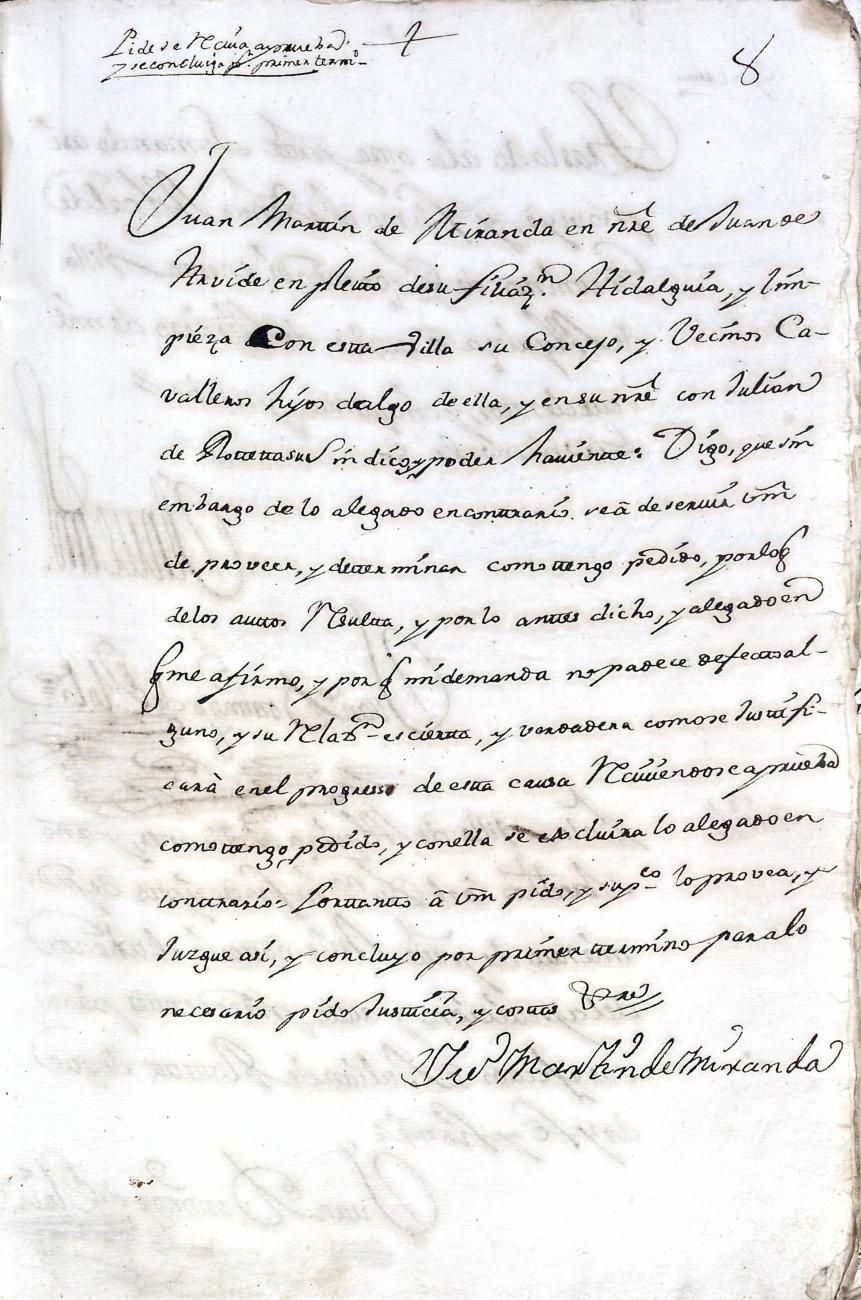 Pide se Reciva a prueba,
y se concluija pr. primer term.o
8
Juan Martin de Miranda en nre de Juan de
en pleito de su filiaz.n Hidalguia, y lim-
pieza Con esta Villa su Concejo, y Vecinos Ca-
valleros hijos dalgo de ella, y en su nre con Julian
de su Sindico, y poder haviente: Digo, que sin
embargo de lo alegado en contrario se â de servir Vm
de proveer, y determinar como tengo pedido, por lo q
de los autos Resulta, y por lo antes dicho, y alegado en
q me afirmo, y por q mi demanda no padece defecto al-
guno, y su Relaz.n es cierta, y verdadera como se Justifi-
carà en el progreso de esta causa Reciviendose a prueba
como tengo pedido, y con ella se escluira lo alegado en
contrario: Portanto â Vm pido, y sup.co lo provea, y
Juzgue asi, y concluyo por primer termino para lo
necesario pido Justicia, y costas
Ju.o Martin de Miranda